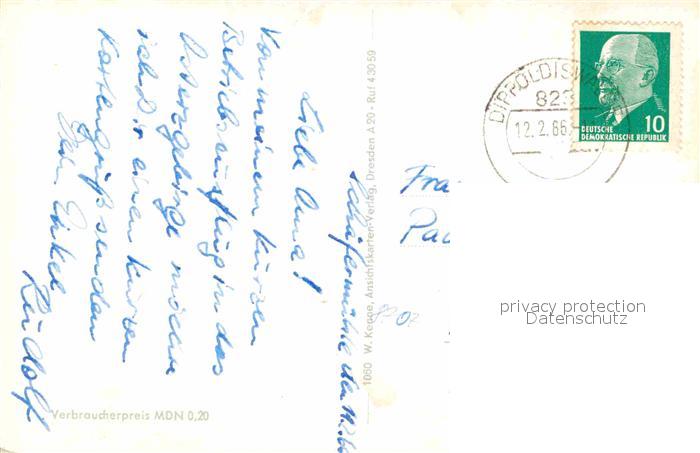 Schäfermühle den 14.2.66
Liebe Oma!
Von meinem kurzen
Betriebsausflug in das
Osterzgebirge möchte
ich Dir einen kurzen
Kartengruß senden
Dein Enkel
Rudolf
Verbraucherpreis MDN 0,20
1060 W. Kenne, Ansichtskarten-Verlag, Dresden A 20 · Ruf 43059
DIPPOLDISWA
823
12.2.66
10
DEUTSCHE
DEMOKRATISCHE REPUBLIK
Fra
Pau
privacy protection
Datenschutz